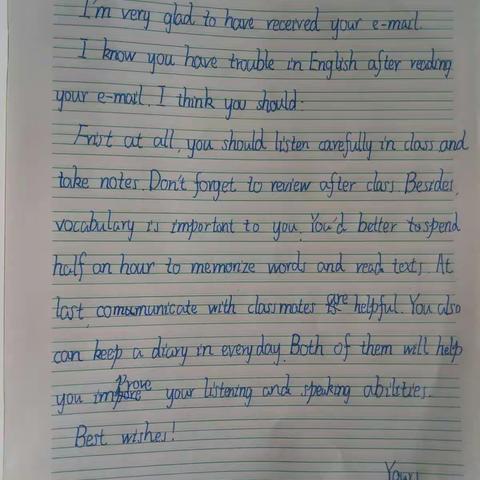 I'm very glad to have received your e-mail.
I know you have trouble in English after reading
your e-mail. I think you should:
Frist at all, you should listen carefully in class and
take notes. Don't forget to review after class. Besides,
vocabulary is important to you. You'd better to spend
half an hour to memorize words and read texts. At
last, communicate with classmates are helpful. You also
can keep a diary in everyday. Both of them will help
you improve your listening and speaking abilities.
Best wishes!
Yours